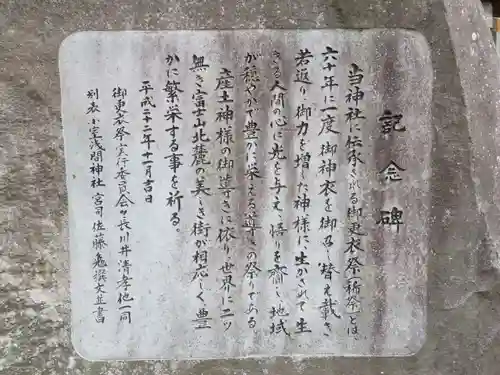 記念碑
当神社に伝承される御更衣祭(稀祭)とは、
六十年に一度御神衣を御召し替え戴き
若返り御力を増した神様に、生かされて生
きる人間の心に光を与え、悟りを齎し地域
が穏やかで豊かに栄える導きの祭りである
産土神様の御導きに依り、世界に二ッ
無き富士山北麓の美しき街が相応しく豊
かに繁栄する事を祈る。
平成二十二年十一月吉日
御更衣祭実行委員会々長川井清孝他一同
別表小室浅間神社 宮司佐藤 撰文並書